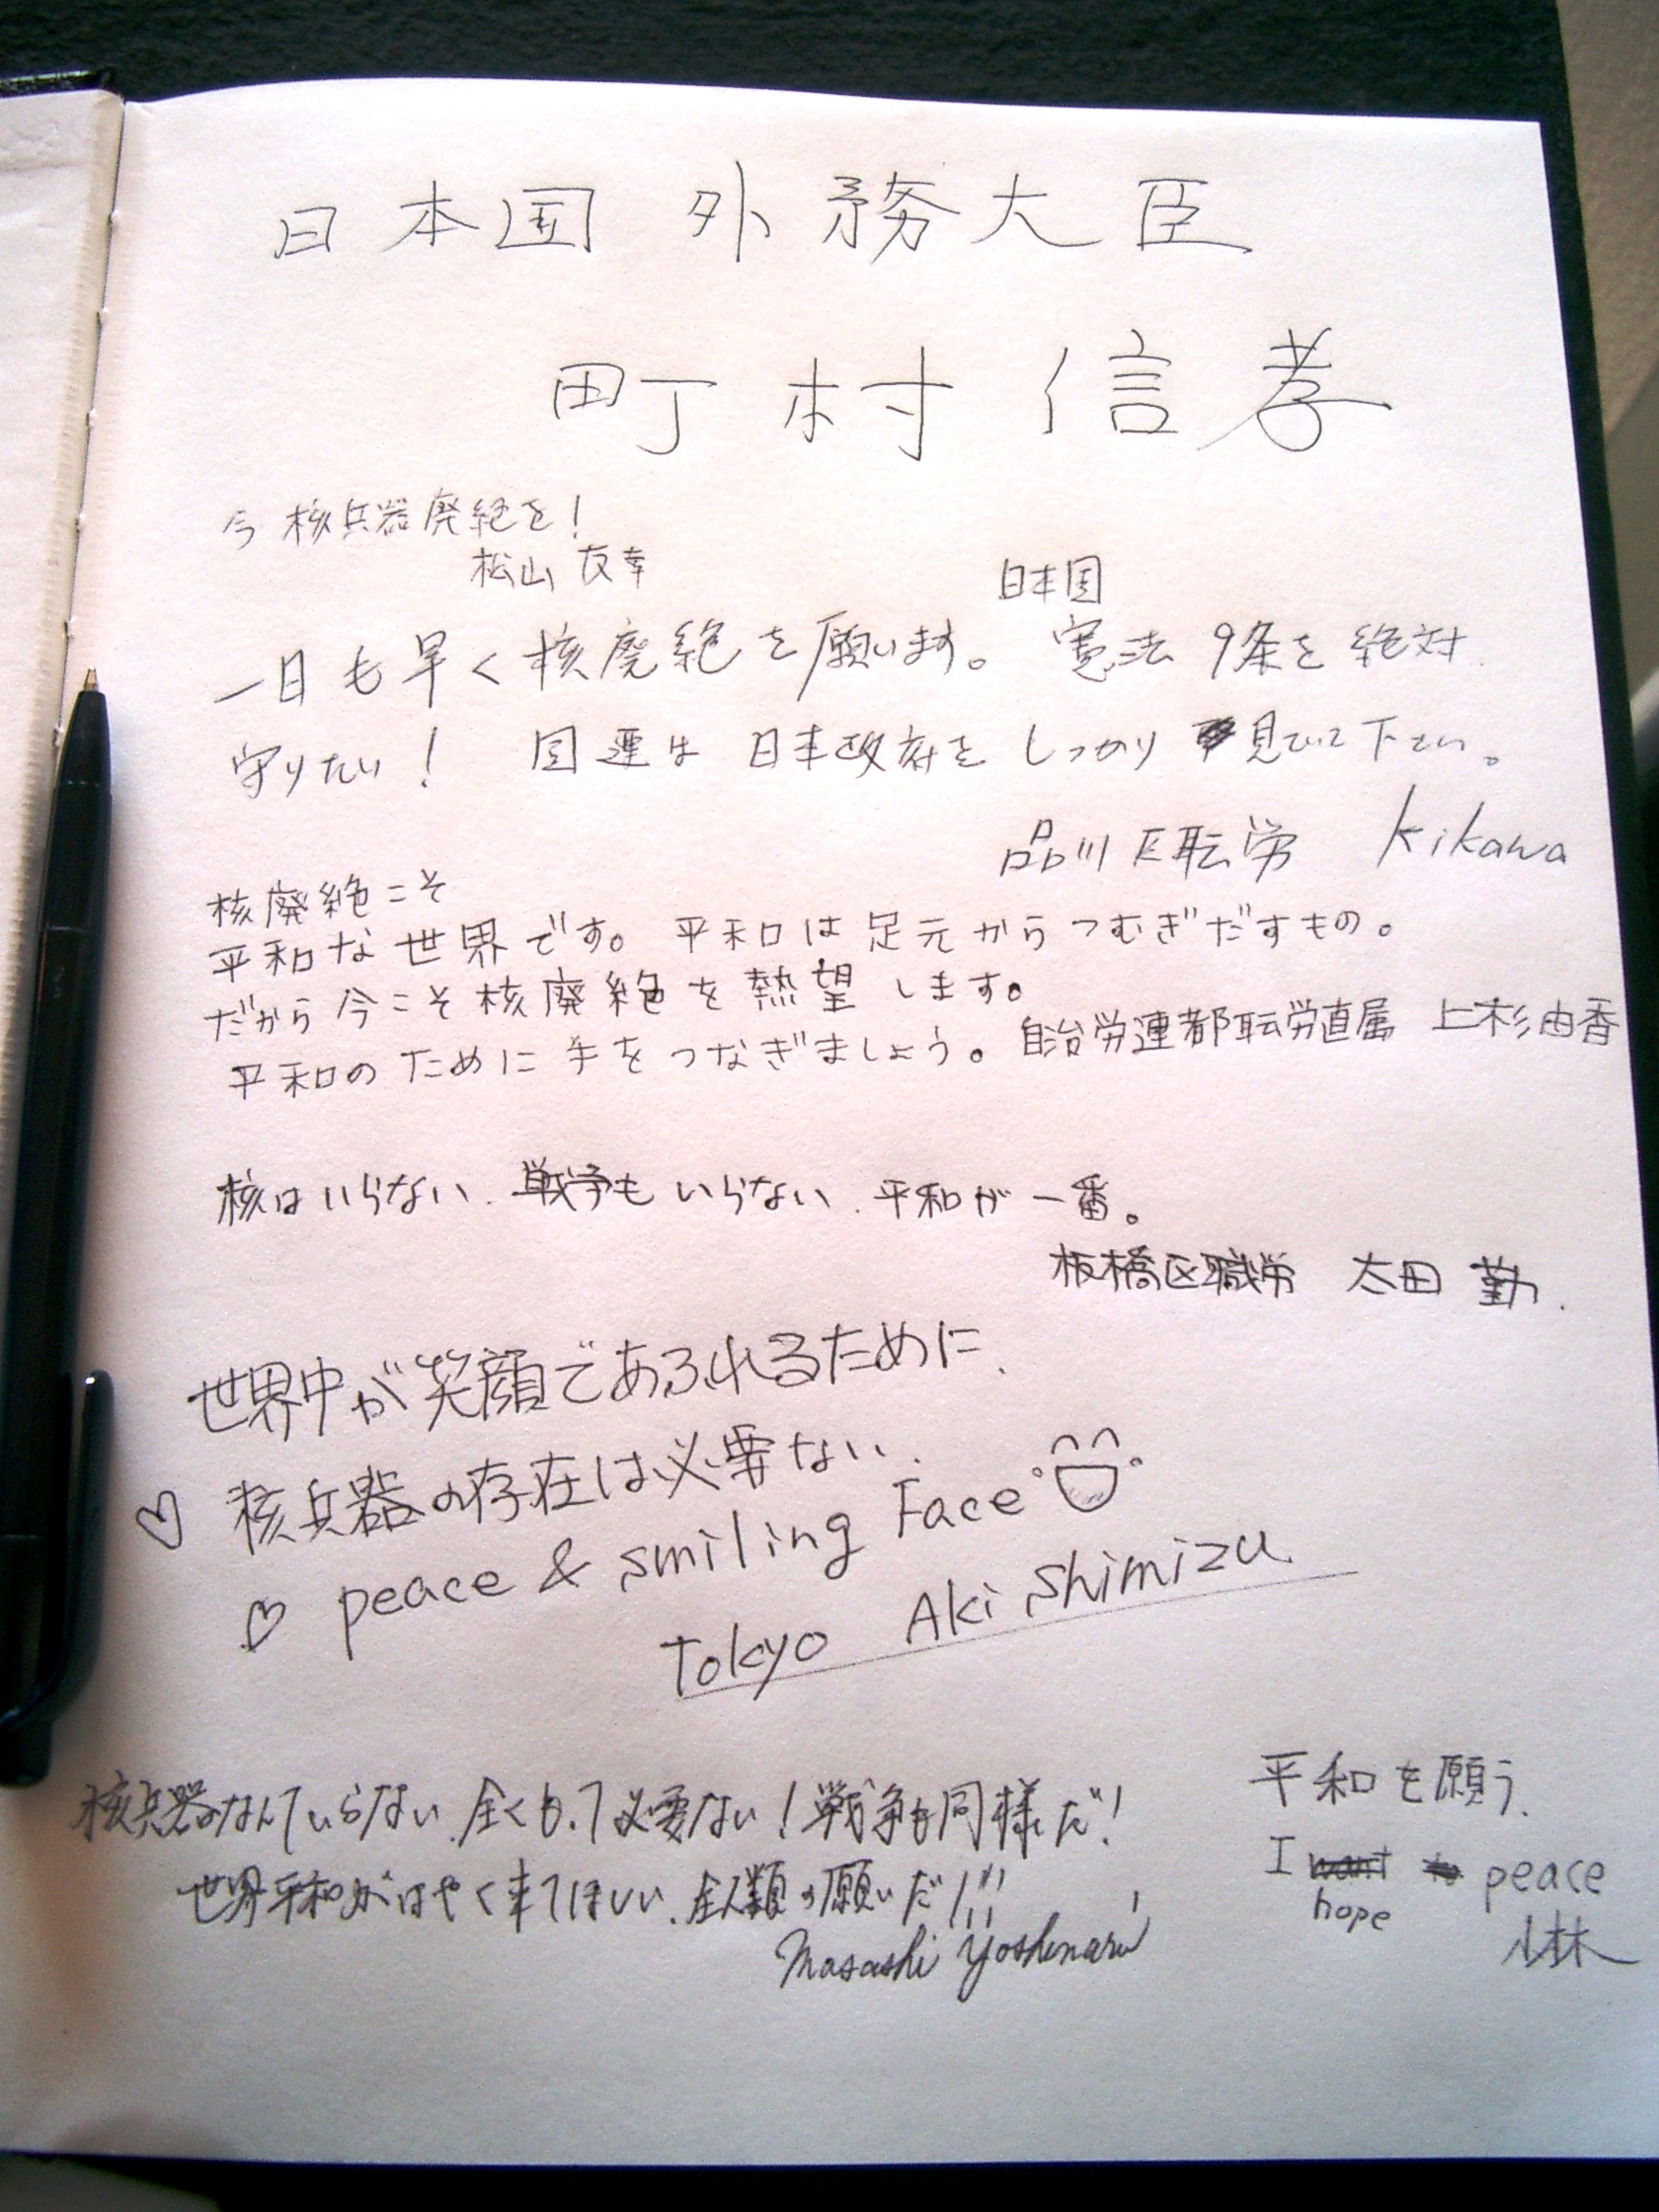 日本国 外務大臣
町村 信孝
今 核兵器廃絶を!
松山 友幸
日本国
一日も早く核廃絶を願います。 憲法 9条を絶対
守りたい! 国連は日本政府をしっかり 見ていて下さい。
品川区職労 Kikawa
核廃絶こそ
平和な世界です。平和は足元からつむぎだすもの。
だから今こそ核廃絶を熱望します。
平和のために手をつなぎましょう。自治労連都職労直属 上杉由香
核はいらない. 戦争もいらない. 平和が一番。
板橋区職労 太田 勤.
世界中が笑顔であふれるために、
♡ 核兵器の存在は必要ない、
♡ peace & smiling Face
Tokyo Aki Shimizu.
核兵器なんていらない、全くもって必要ない!戦争も同様だ!
世界平和がはやく来てほしい、全人類の願いだ!!!
Masashi Yoshinari
平和を願う、
I want to peace
hope
小林